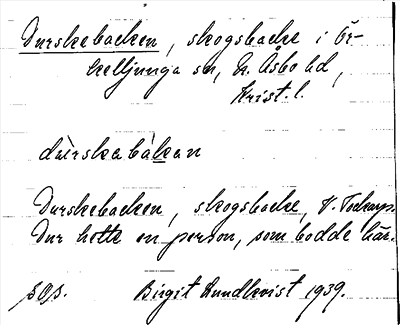 Durskebacken, skogsbacke i Ör-
kelljunga sn, N. Åsbo hd,
Krist. l.
dùrskabàkan
Durskebacken, skogsbacke, V. Torkarp.
Dur hette en person, som bodde där.
Birgit Lundkvist 1939.